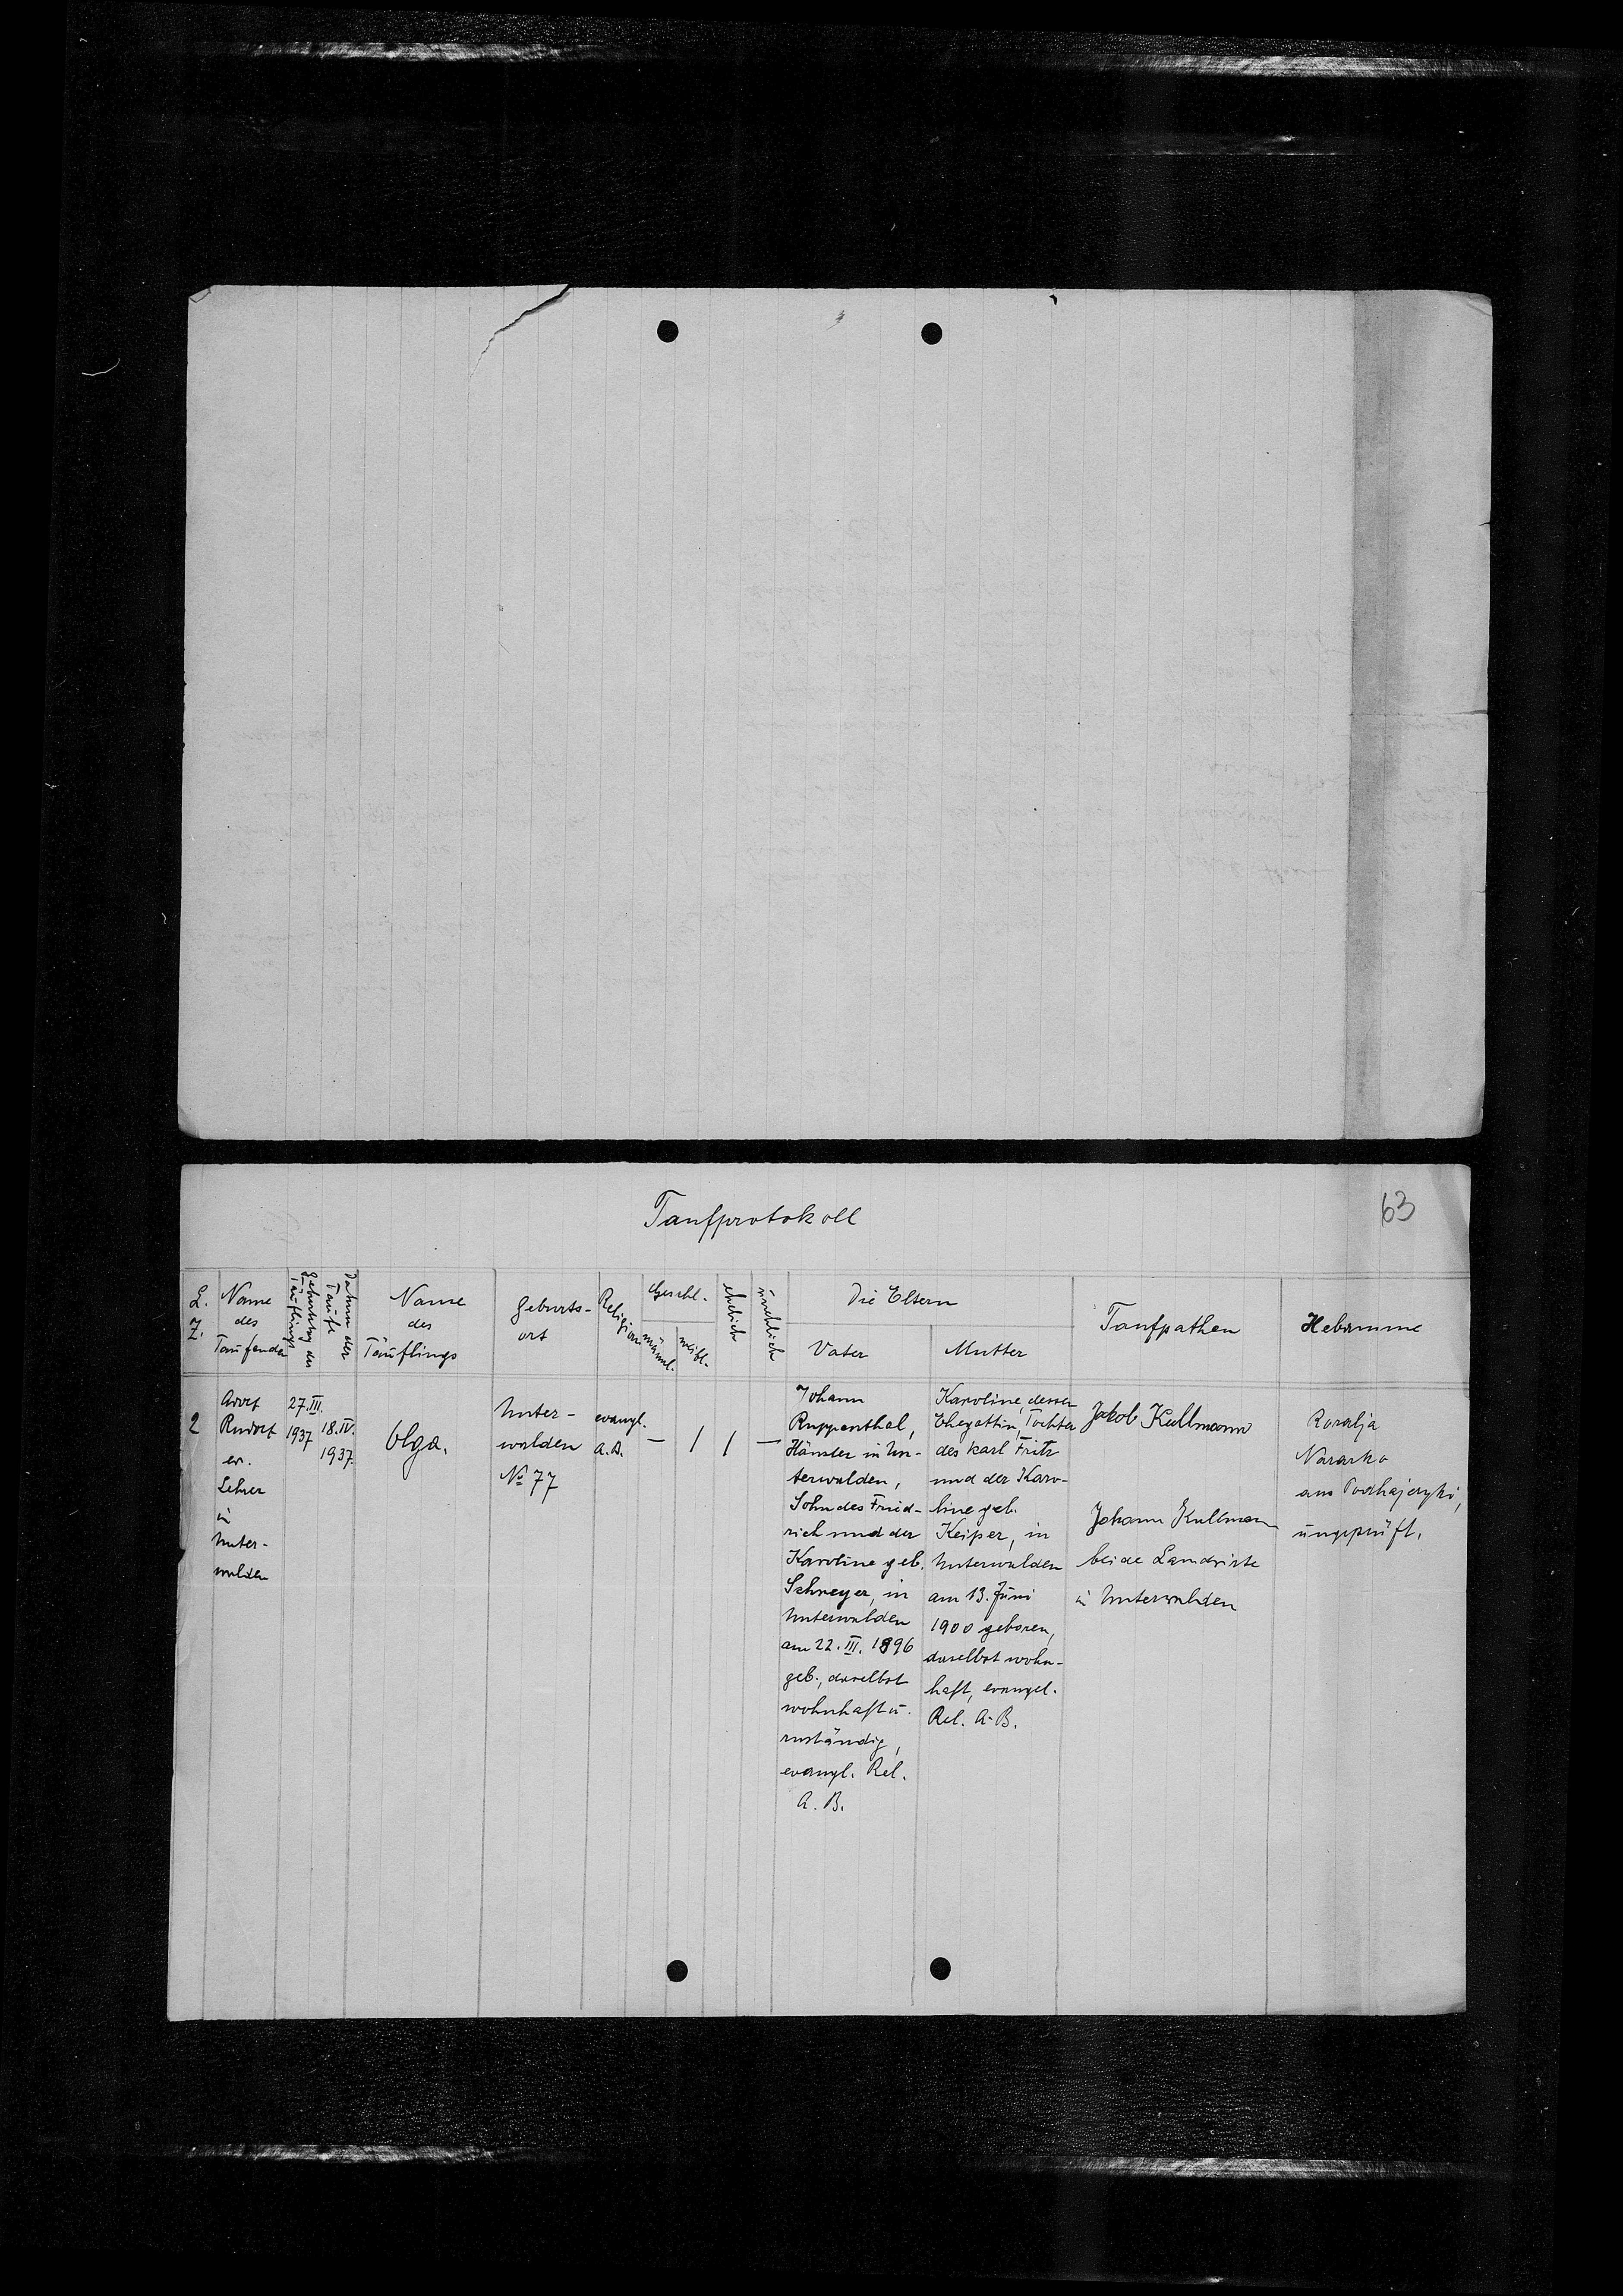 Taufprotokoll
63
L. Z.
Name des Taufenden
Geburtstag des Täuflings
Datum der Taufe
Name des Täuflings
Geburts-
ort
Religion
Geschl.
männl.
weibl.
ehelich
unehelich
Die Eltern
Vater
Mutter
Taufpathen
Hebamme
2
Rudolf
ev.
Lehrer
in
Unter-
walden
27.III.
1937
18.IV.
1937.
Olga.
Unter-
walden
No 77
evangl.
A.B.
—
/
/
—
Johann
Ruppenthal,
Häusler in Un-
terwalden,
Sohn des Fried-
rich und der
Karoline geb.
Schreyer, in
Unterwalden
am 22. III. 1896
geb., daselbst
wohnhaft u.
zuständig,
evangl. Rel.
A. B.
Karoline, dessen
Ehegattin, Tochter
des Karl Fritz
und der Karo-
line geb.
Keiper, in
Unterwalden
am 13. Juni
1900 geboren,
daselbst wohn-
haft, evangel.
Rel. A. B.
Jakob Kullmann
Johann Kullmann
beide Landwirte
in Unterwalden
Rozalja
aus Podhajczyki,
ungeprüft.